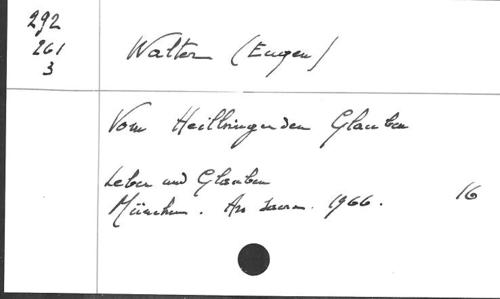 292
261
3
Walter (Eugen)
Vom Heilbringenden Glauben
Leben und Glauben
München. Ars sacra. 1966. 16